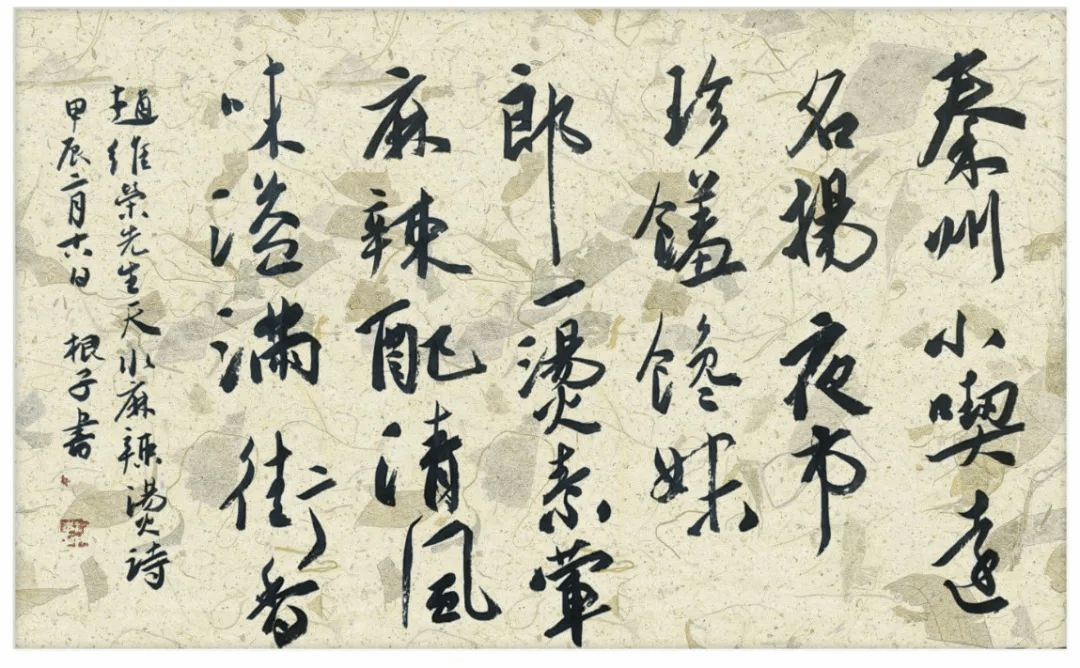 秦州小喫遠
名揚夜市
珍饈饞妹
郎一燙素葷
麻辣配清風
味溢滿街香
趙維榮先生天水麻辣燙詩
甲辰二月十八日 根子書